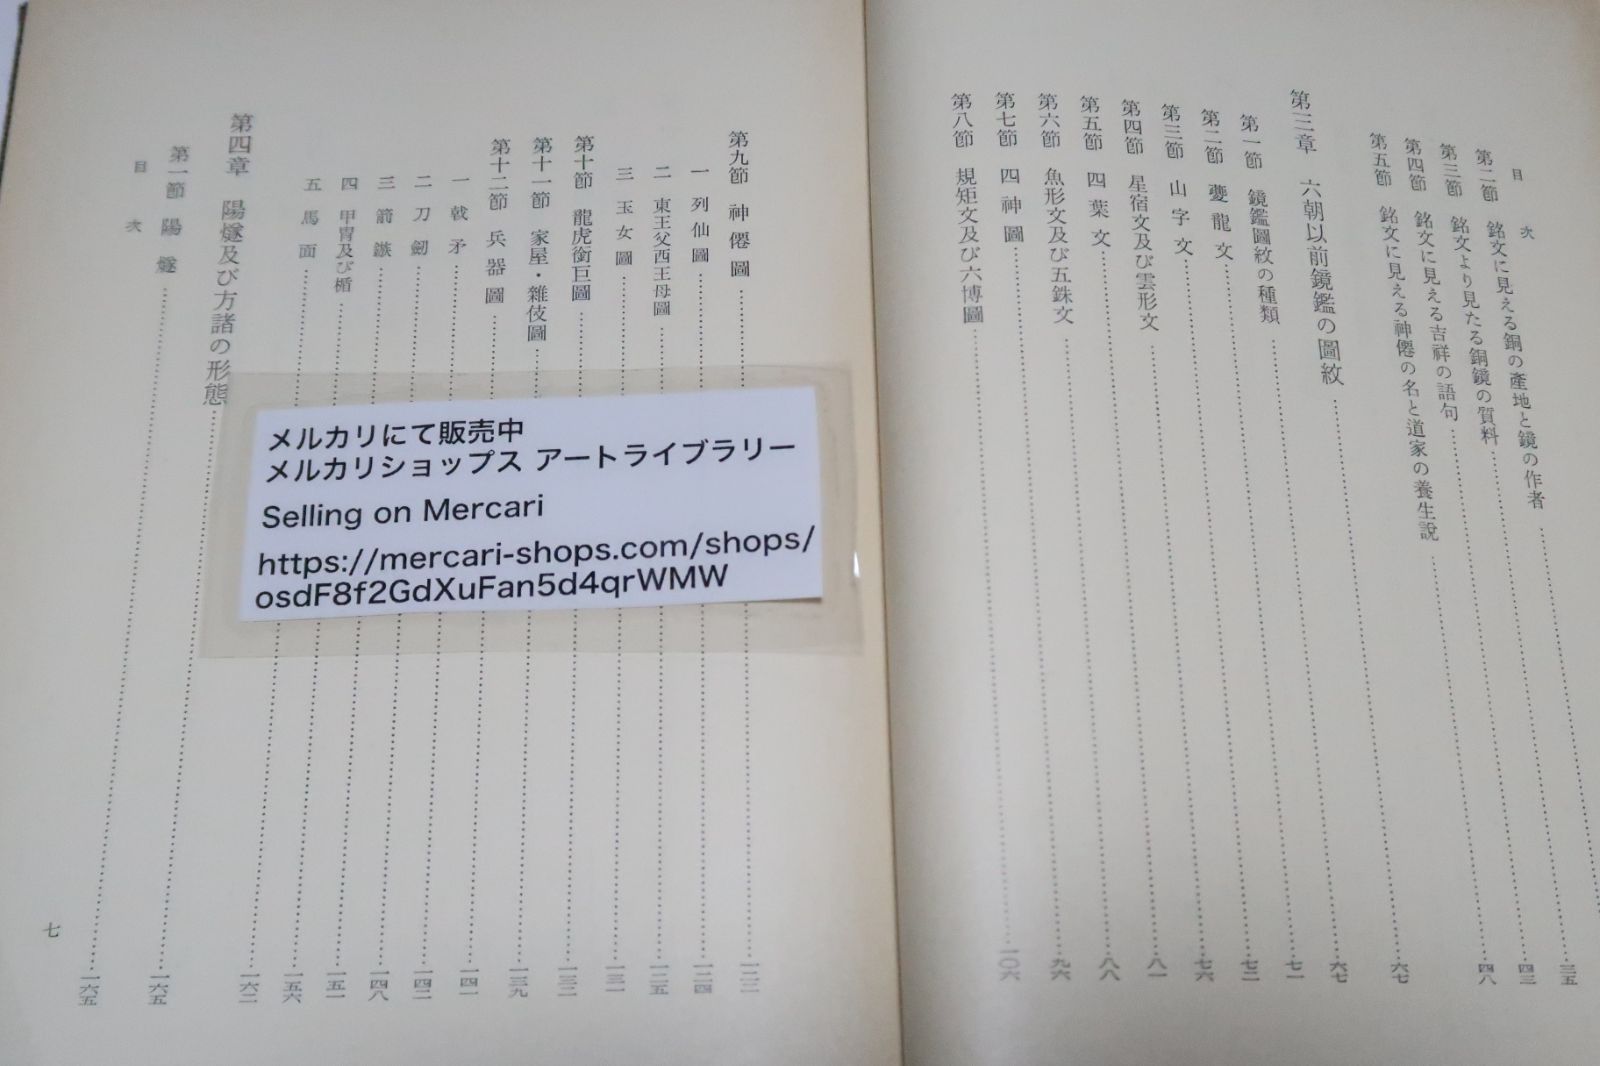 目次
第二節 銘文に見える銅の產地と鏡の作者
第三節 銘文より見たる銅鏡の質料 三五
第四節 銘文に見える吉祥の語句 四三
第五節 銘文に見える神僊の名と道家の養生說 四八
第三章 六朝以前鏡鑑の圖紋 六七
第一節 鏡鑑圖紋の種類 六七
第二節 夔龍文 七一
第三節 山字文 七二
第四節 星宿文及び雲形文 七六
第五節 四葉文 八一
第六節 魚形文及び五銖文 八八
第七節 四神圖 九六
第八節 規矩文及び六博圖 一〇六
第九節 神僊圖 一二二
一 列仙圖 一二四
二 東王父西王母圖 一二五
三 玉女圖 一三一
第十節 龍虎銜巨圖 一三二
第十一節 家屋・雜伎圖 一三九
第十二節 兵器圖 一四一
一 戟矛 一四二
二 刀劒 一四八
三 箭鏃 一五一
四 甲冑及び楯 一五六
五 馬面 一六二
第四章 陽燧及び方諸の形態 一六五
第一節 陽燧 一六五
目次
七
メルカリにて販売中
メルカリショップス アートライブラリー
Selling on Mercari
https://mercari-shops.com/shops/
osdF8f2GdXuFan5d4qrWMW